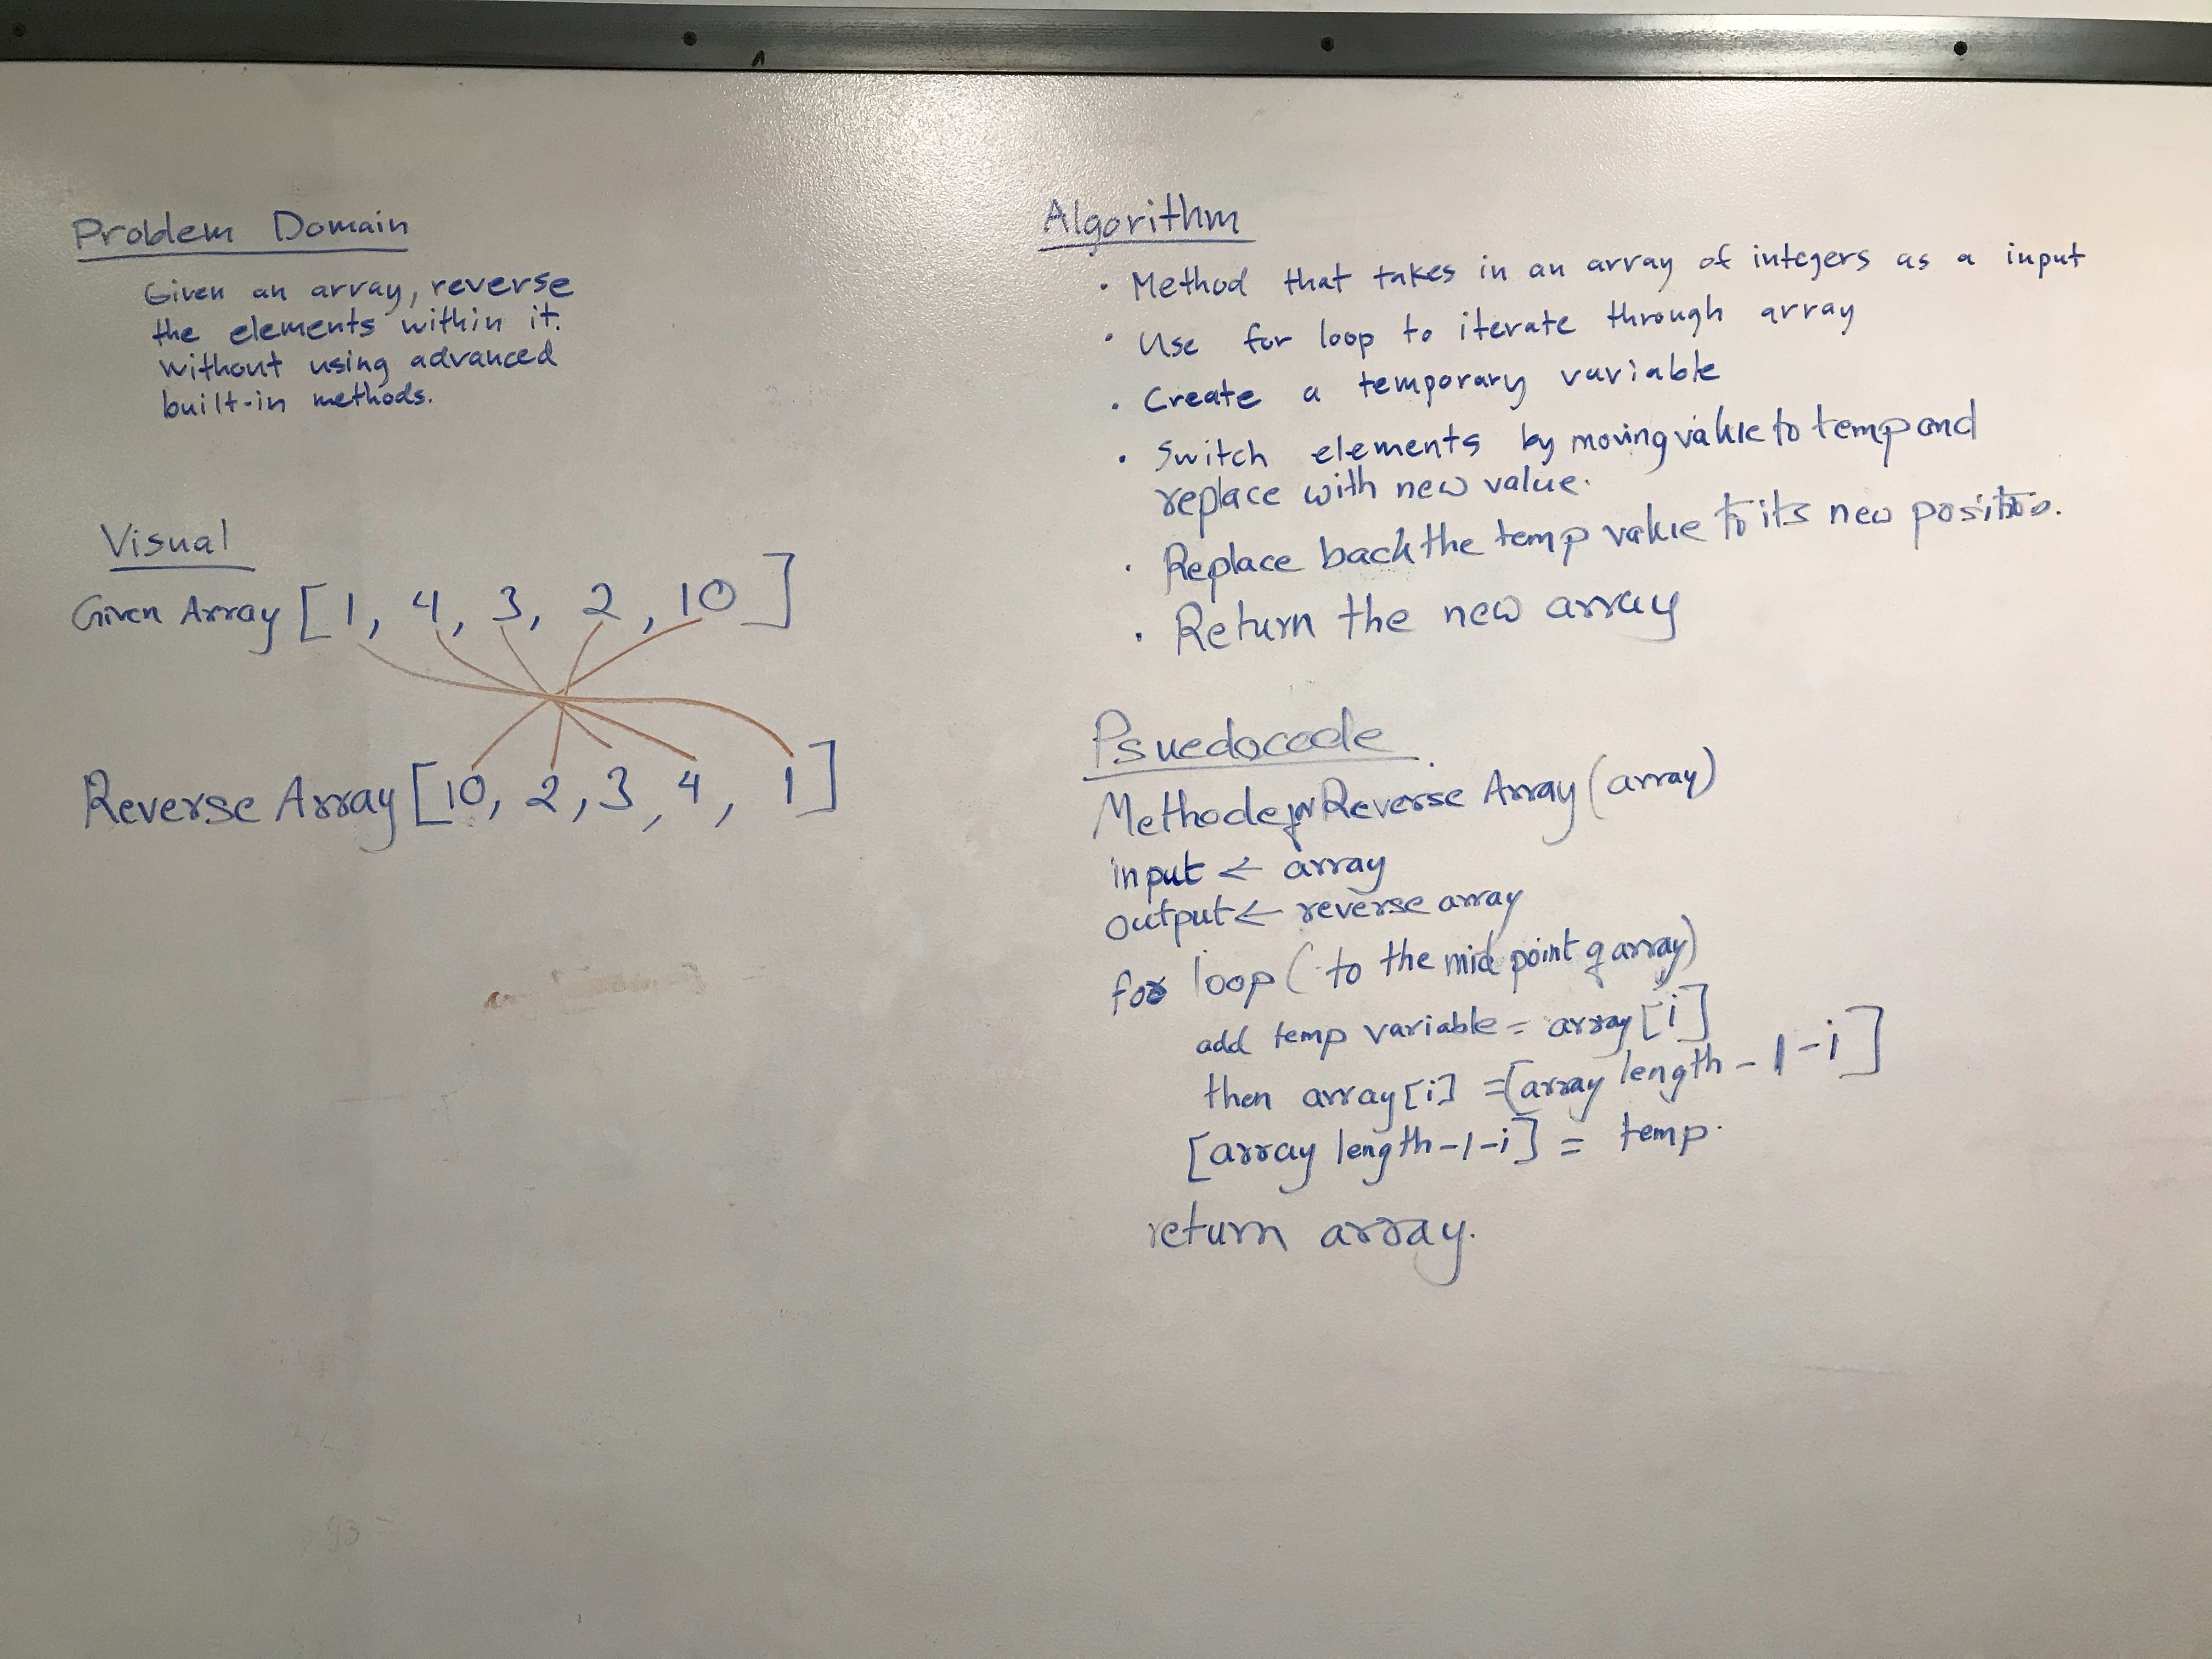 Problem Domain
Given an array, reverse
the elements within it.
without using advanced
built-in methods.
Visual
Given Array [1, 4, 3, 2, 10]
Reverse Array [10, 2, 3, 4, 1]
Algorithm
· Method that takes in an array of integers as a input
· Use for loop to iterate through array
· Create a temporary variable
· Switch elements by moving value to temp and
replace with new value.
· Replace back the temp value to its new position.
· Return the new array
Psuedocode
Methode for Reverse Array (array)
input ← array
output ← reverse array
for loop ( to the mid point of array)
add temp variable = array [i]
then array [i] = [array length - 1 - i]
[array length-1-i] = temp.
return array.